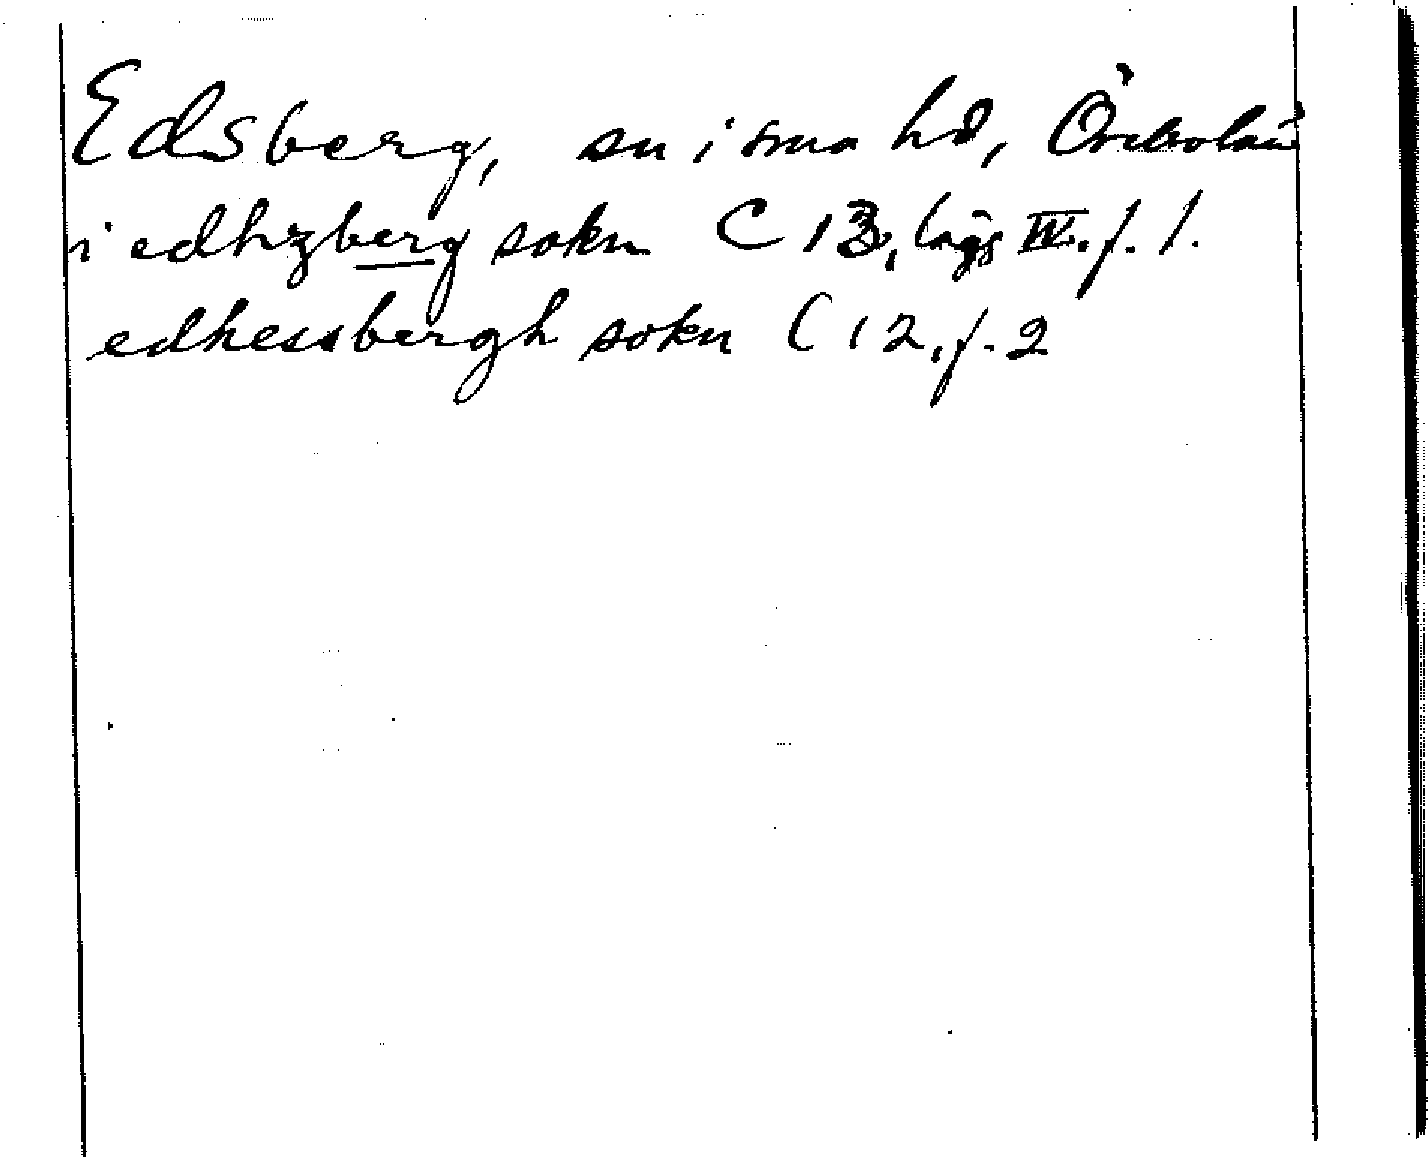 Edsberg, sn i sma hd, Örebro län
i edhzberg sokn C 13, lägg IV. f. 1.
edhessbergh sokn C 12, f. 2